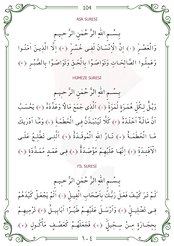 104
ASR SURESİ
بِسْمِ اللّٰهِ الرَّحْمٰنِ الرَّحِيمِ
وَالْعَصْرِ ﴿١﴾ اِنَّ الْاِنْسَانَ لَفِى خُسْرٍ ﴿٢﴾ اِلَّا الَّذِينَ اٰمَنُوا
وَعَمِلُوا الصَّالِحَاتِ وَتَوَاصَوْا بِالْحَقِّ وَتَوَاصَوْا بِالصَّبْرِ ﴿٣﴾
HÜMEZE SURESİ
بِسْمِ اللّٰهِ الرَّحْمٰنِ الرَّحِيمِ
وَيْلٌ لِكُلِّ هُمَزَةٍ لُمَزَةٍ ﴿١﴾ الَّذِى جَمَعَ مَالًا وَعَدَّدَهُ ﴿٢﴾ يَحْسَبُ
اَنَّ مَالَهُ اَخْلَدَهُ ﴿٣﴾ كَلَّا لَيُنْبَذَنَّ فِى الْحُطَمَةِ ﴿٤﴾ وَمَا اَدْرٰيكَ
مَا الْحُطَمَةُ ﴿٥﴾ نَارُ اللّٰهِ الْمُوقَدَةُ ﴿٦﴾ الَّتِى تَطَّلِعُ عَلَى
الْاَفْئِدَةِ ﴿٧﴾ اِنَّهَا عَلَيْهِمْ مُؤْصَدَةٌ ﴿٨﴾ فِى عَمَدٍ مُمَدَّدَةٍ ﴿٩﴾
FİL SURESİ
بِسْمِ اللّٰهِ الرَّحْمٰنِ الرَّحِيمِ
اَلَمْ تَرَ كَيْفَ فَعَلَ رَبُّكَ بِاَصْحَابِ الْفِيلِ ﴿١﴾ اَلَمْ يَجْعَلْ كَيْدَهُمْ
فِى تَضْلِيلٍ ﴿٢﴾ وَاَرْسَلَ عَلَيْهِمْ طَيْرًا اَبَابِيلَ ﴿٣﴾ تَرْمِيهِمْ
بِحِجَارَةٍ مِنْ سِجِّيلٍ ﴿٤﴾ فَجَعَلَهُمْ كَعَصْفٍ مَأْكُولٍ ﴿٥﴾
١٠٤